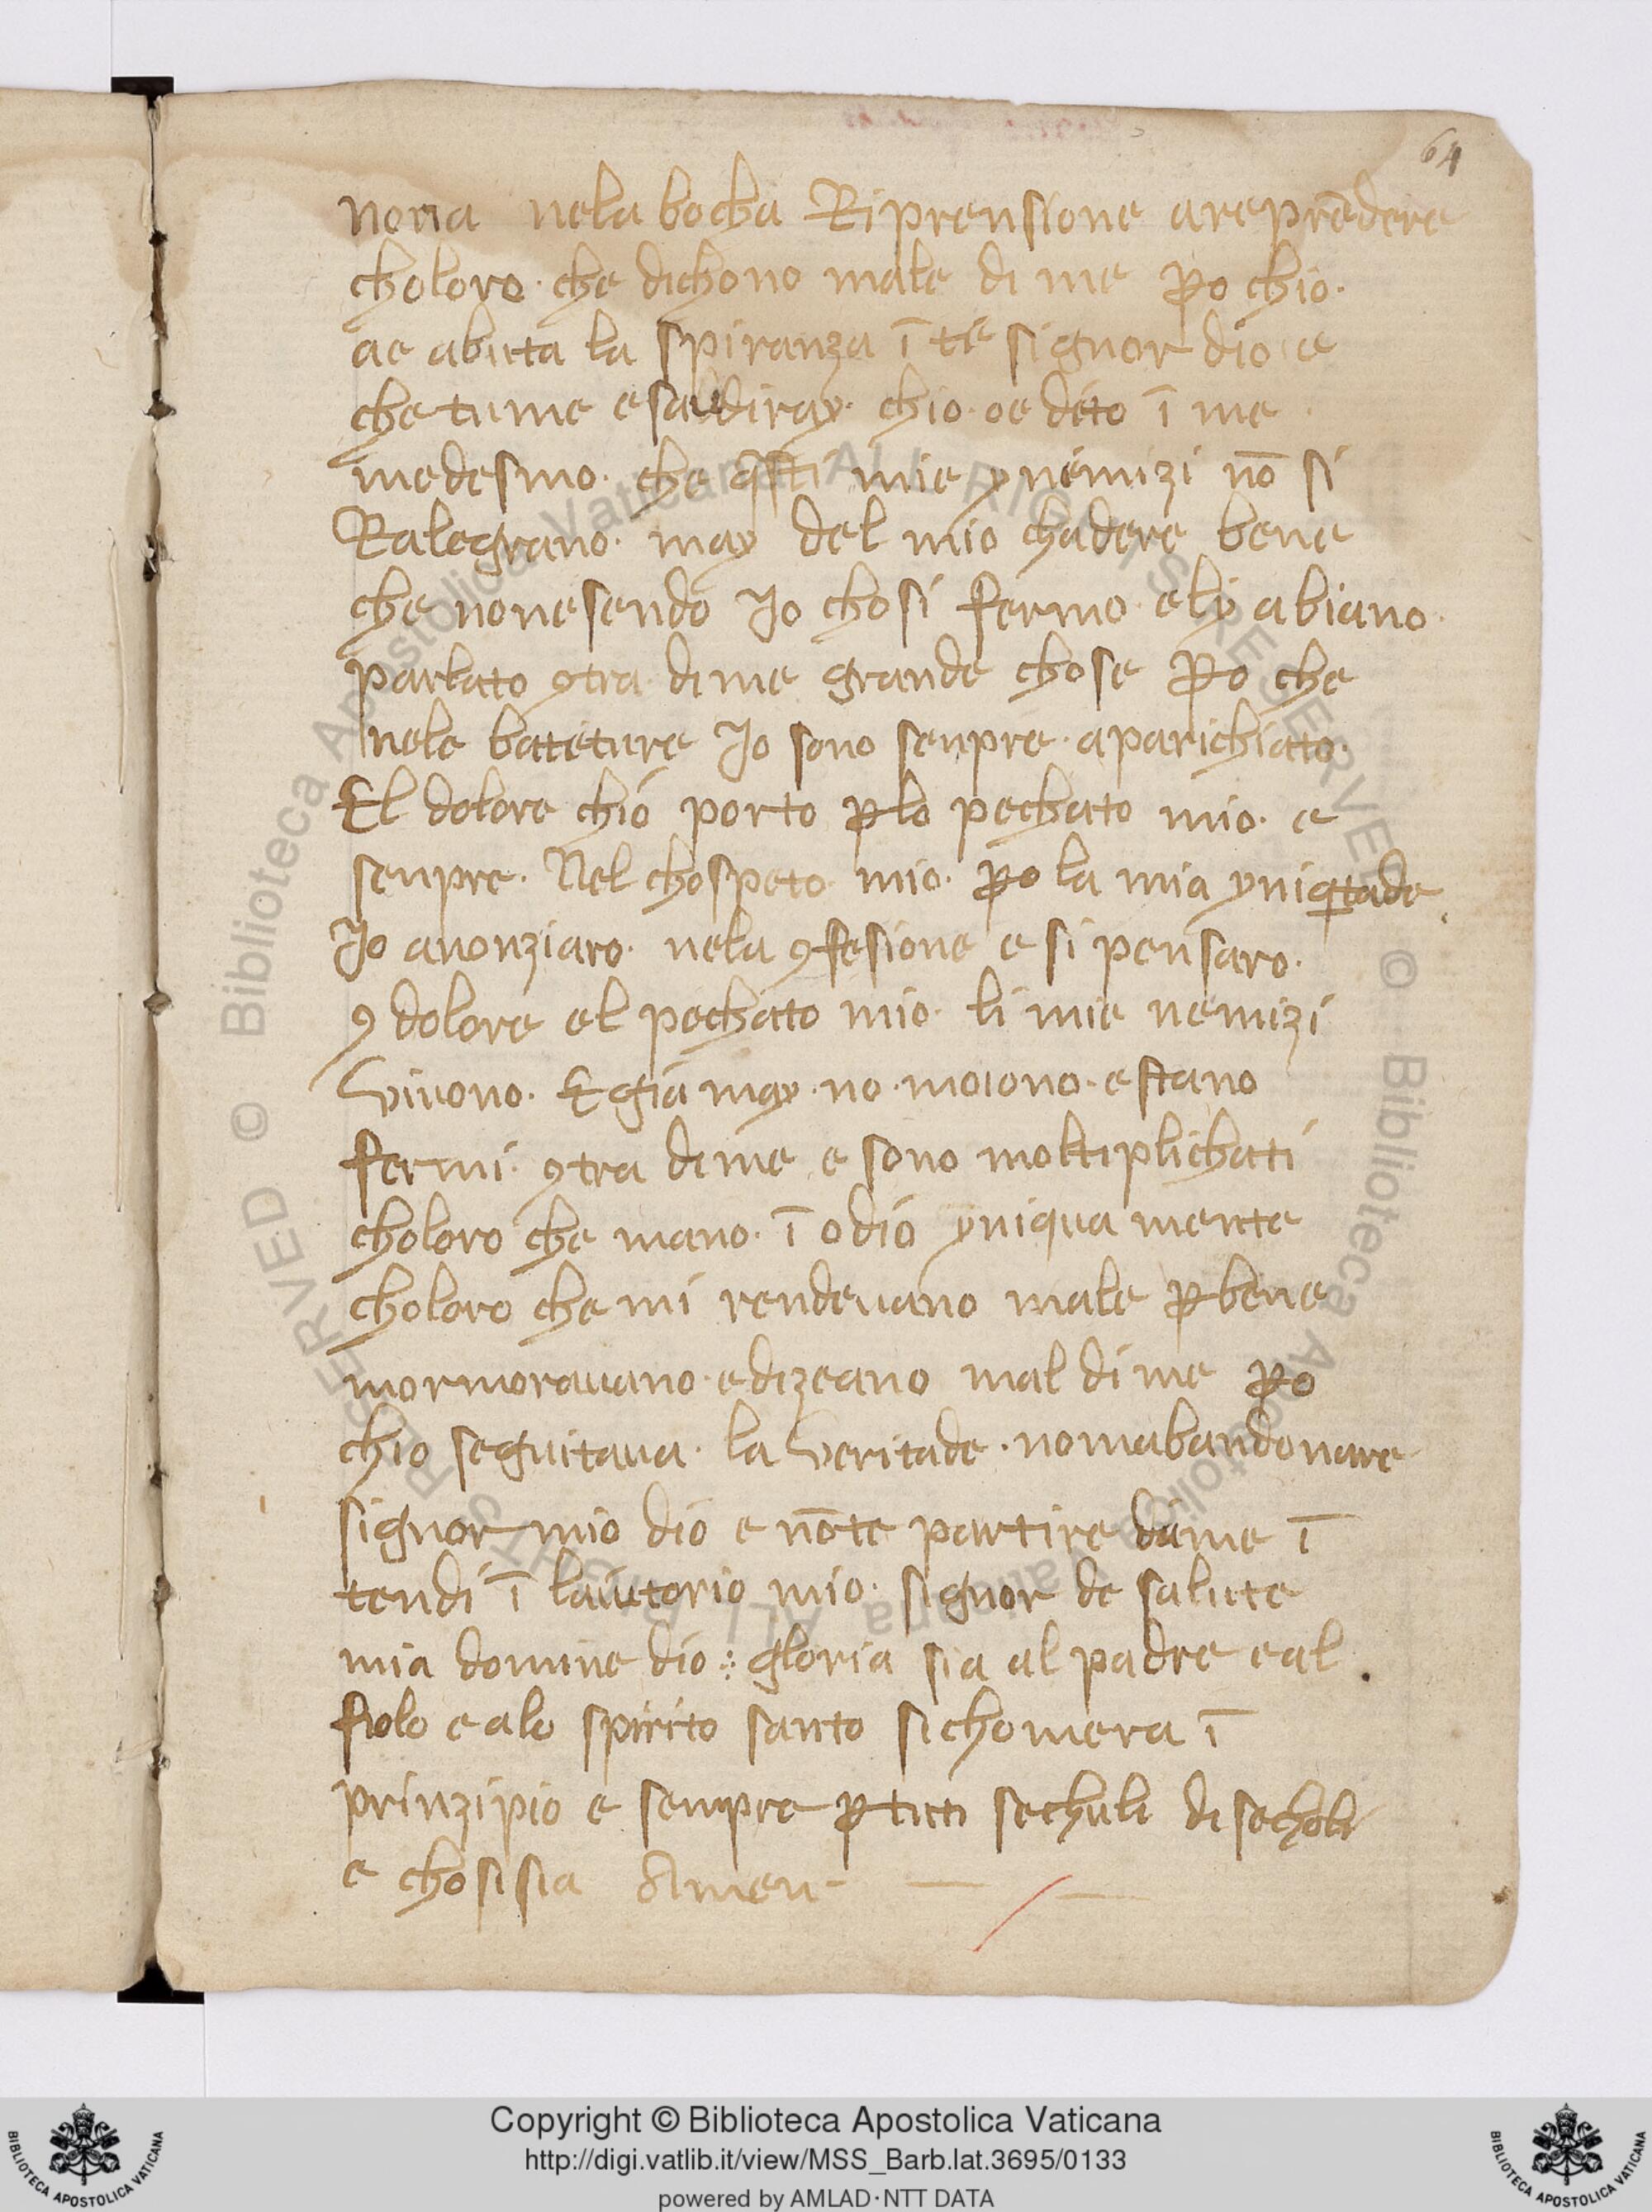 64
nona nela bocha Riprensione a reprēdere
choloro · che dichono male di me ꝑo chio ·
ae abuta la spiranza ī te signor dio e
che tu me esaudiray · chio · oe dito ī me
medesmo · che q̄sti mie ynemizi nō si
Ralegrano · may del mio chadere bene
che non esendo Io chosi fermo · ely abiano ·
parlato ꝯtra di me grande chose ꝑo che
nele bateture Io sono senpre · aparichiato ·
El dolore chio porto ꝑ lo pechato mio · e
senpre · Nel chospeto mio · ꝑo la mia yniq̄tade
Io anonziaro · nela ꝯfesione e si pensaro ·
ꝯ dolore el pechato mio · li mie nemizi
vivono · E gia may · no · moiono · e stano
fermi · ꝯtra di me e sono moltiplichati
choloro che mano · ī odio yniqua mente
choloro che mi rendevano male ꝑ bene
mormoravano · e dizeano mal di me ꝑo
chio seguitava · la veritade · no mabandonare
signor mio dio e nō te partire da me ī
tendi ī laiutorio mio · signor de salute
mia domine dio : gloria sia al padre e al
fiolo e alo spirito santo si chomera ī
prinzipio e sempre ꝑ tuti sechuli di secholi
e chosi sia Amen -
© Biblioteca Apostolica Vaticana ALL RIGHTS RESERVED
© Biblioteca Apostolica Vaticana ALL RIGHTS RESERVED
Copyright © Biblioteca Apostolica Vaticana
http://digi.vatlib.it/view/MSS_Barb.lat.3695/0133
powered by AMLAD·NTT DATA
BIBLIOTECA APOSTOLICA VATICANA
BIBLIOTECA APOSTOLICA VATICANA